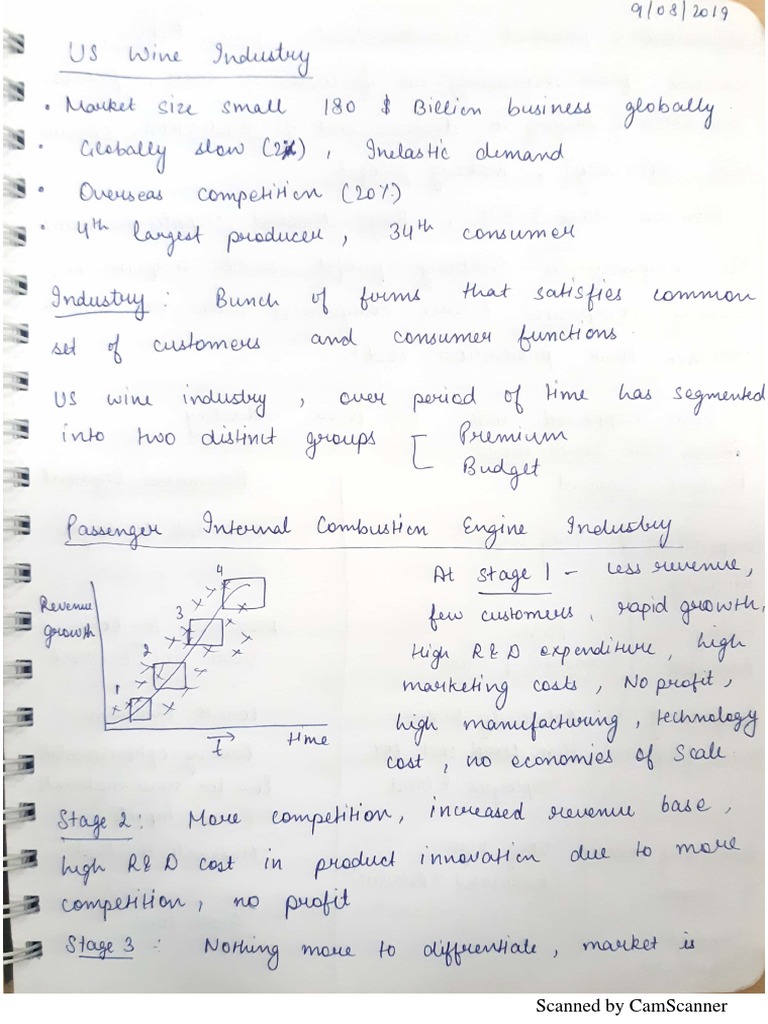 9/08/2019
US Wine Industry
• Market size small 180 $ Billion business globally.
• Globally slow (2%), Inelastic demand
• Overseas competition (20%)
• 4th largest producer, 34th consumer
Industry: Bunch of firms that satisfies common
set of customers and consumer functions.
US wine industry, over period of time has segmented
into two distinct groups [ Premium
Budget
Passenger Internal Combustion Engine Industry
Revenue
growth
1
2
3
4
t
time
At stage 1 - less revenue,
few customers, rapid growth,
High R&D expenditure, high
marketing costs, No profit,
high manufacturing, technology
cost, no economies of scale.
Stage 2: More competition, increased revenue base,
high R&D cost in product innovation due to more
competition, no profit
Stage 3: Nothing more to diffrentiate, market is
Scanned by CamScanner